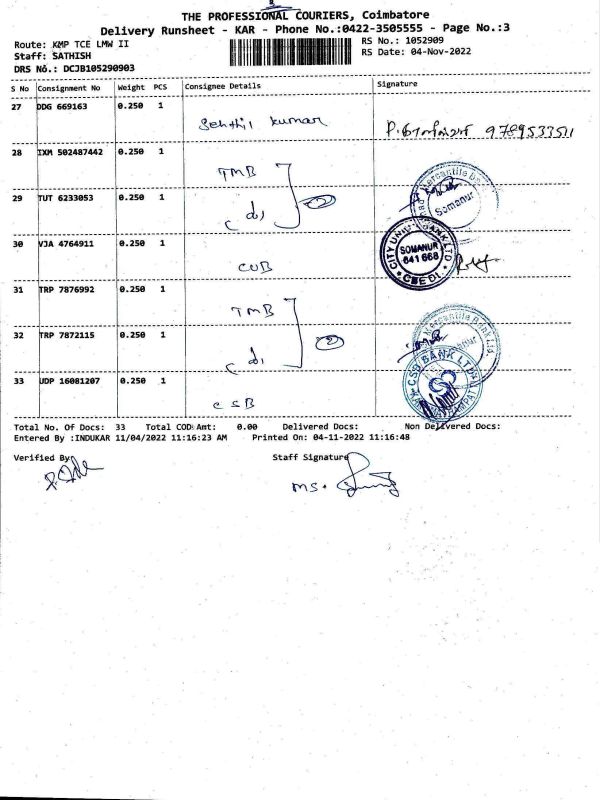 THE PROFESSIONAL COURIERS, Coimbatore
Delivery Runsheet - KAR - Phone No.:0422-3505555 - Page No.:3
Route: KMP TCE LMW II
RS No.: 1052909
Staff: SATHISH
RS Date: 04-Nov-2022
DRS No.: DCJB105290903
S No Consignment No Weight PCS Consignee Details Signature
27 DDG 669163 0.250 1 Senthil Kumar 9789533511
28 IXM 502487442 0.250 1 TMB
29 TUT 6233053 0.250 1 do 2 Mercantile Ba Somanur
30 VJA 4764911 0.250 1 CUB CITY UNION BANK LTD SOMANUR 641 668 CBE DT.
31 TRP 7876992 0.250 1 TMB
32 TRP 7872115 0.250 1 do 2 Mercantile Bank Ltd.
33 UDP 16081207 0.250 1 CSB CSB BANK LTD
Total No. Of Docs: 33 Total COD Amt: 0.00 Delivered Docs: Non Delivered Docs:
Entered By :INDUKAR 11/04/2022 11:16:23 AM Printed On: 04-11-2022 11:16:48
Verified By
Staff Signature
MS.